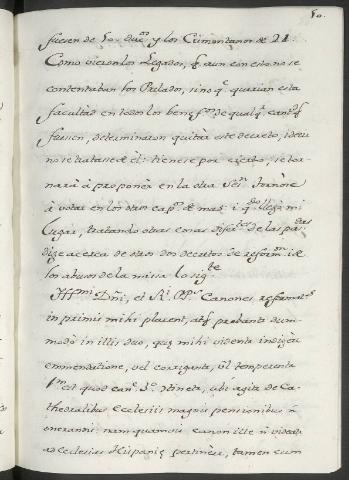 50.
fuesen de 50. duc.os y los Cimontanos de 24
Como vieron los Legados, q̃ aun con esto no se
contentaban los Prelados, sino q.e querian esta
facultad en todos los benef.os de qualq.a cant.d q̃
fuesen, determinaron quitar este decreto, i de
no se tratase de el: tienese por cierto, se tor-
nará á proponer en la otra Ses.n Tornóse
á votar en los otros cap.os de mas i q.do llegó mi
lugar, tratando otras cosas de las pa
dige acerca de otros dos decretos de reform.on i de
los abusos de la missa lo sig.te
Ill.mi Dñi, et R.i P.es Canones, reformat.s
in primis mihi placent, atq̃ probanta dum-
modò in illis duo, quę mihi videnta indigere
emmendatione, vel corrigantr, vl temperenta
1.m est quod can. 3.o ntineta, ubi agita de Ca-
thedralibus Ecclesiis magnis pensionibus ñ
onerandis nam quamvis canon ille ñ videatr
ad Ecclesias Hispanię pertinere, tamen cum